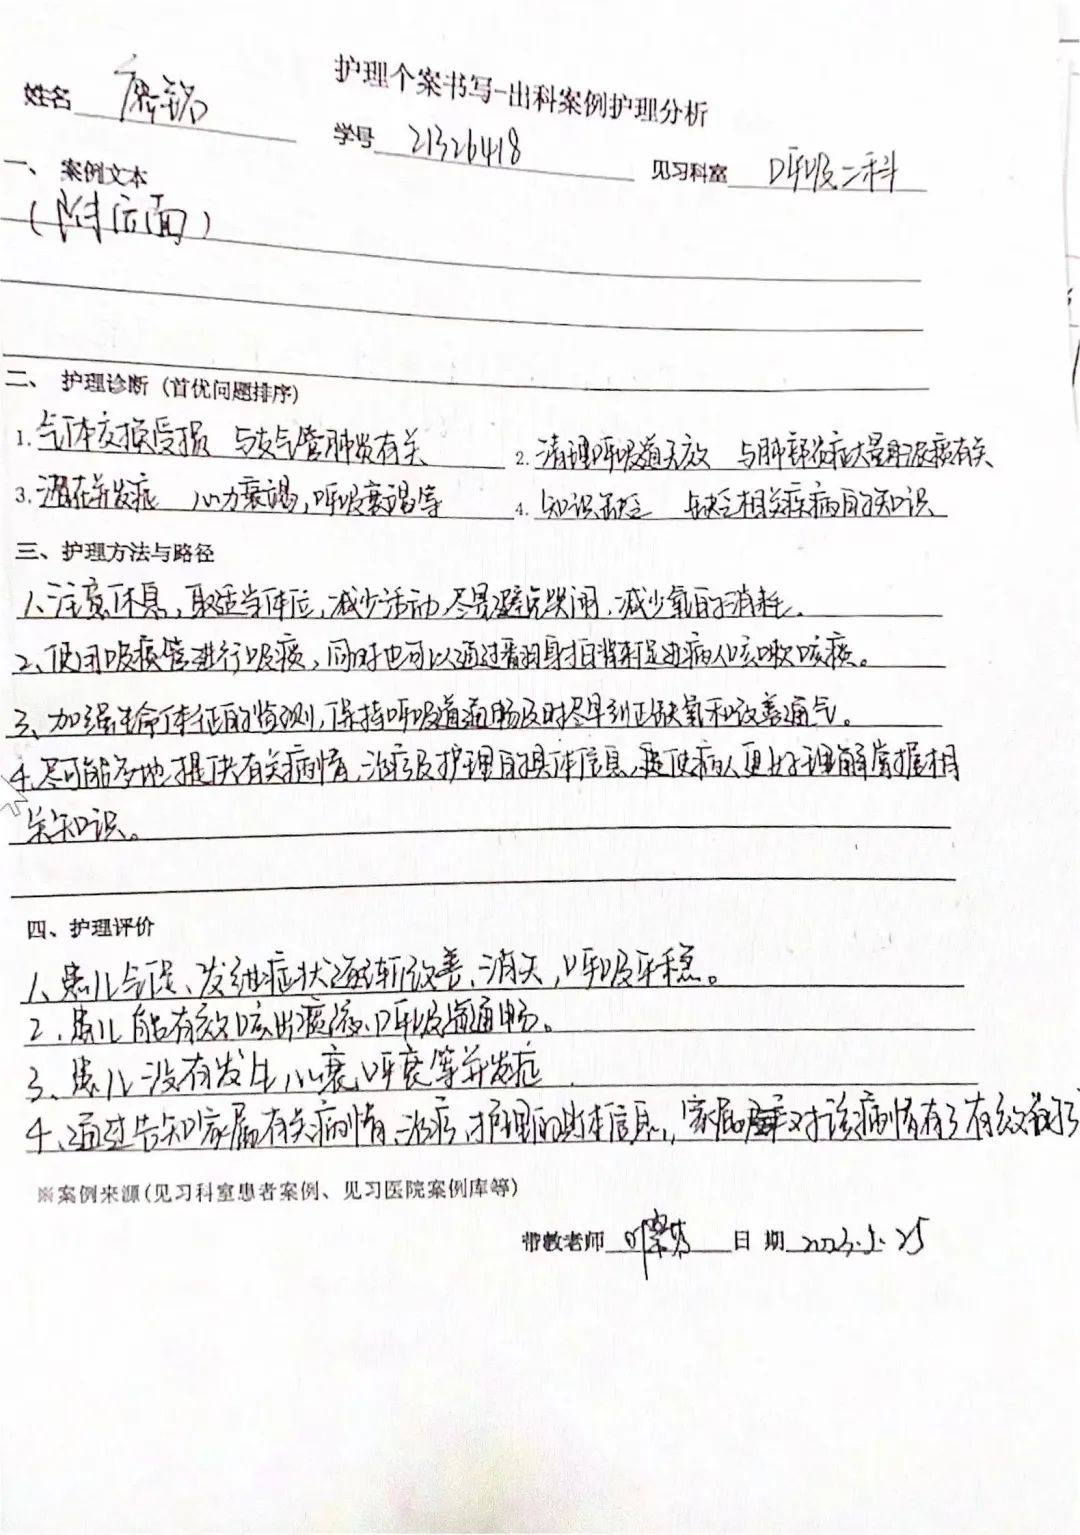 护理个案书写-出科案例护理分析
姓名 学号 21326418 见习科室 呼吸二科
一、 案例文本
(附后面)
二、 护理诊断(首优问题排序)
1. 气体交换受损 与支气管肺炎有关 2. 清理呼吸道无效 与肺部炎症大量 痰液有关
3. 潜在并发症 心力衰竭,呼吸衰竭等 4. 知识缺乏 与缺乏相关疾病的知识
三、护理方法与路径
1、注意休息,取适当体位,减少活动,尽量避免哭闹,减少氧的消耗。
2、使用吸痰管进行吸痰,同时也可以通过翻身拍背来促进病人咳嗽咳痰。
3、加强生命体征的监测,保持呼吸道通畅及时尽早纠正缺氧和改善通气。
4.尽可能多地提供有关病情,治疗及护理的具体信息,要使病人更好理解掌握相
关知识。
四、护理评价
1、患儿气促、发绀症状逐渐改善、消失,呼吸平稳。
2、患儿能有效咳出痰液、呼吸道通畅。
3、患儿没有发生心衰,呼衰等并发症
4、通过告知家属有关病情、治疗,护理的具体信息,家属 对该病情有了有效
※案例来源(见习科室患者案例、见习医院案例库等)
带教老师 日 期 2023.5.25